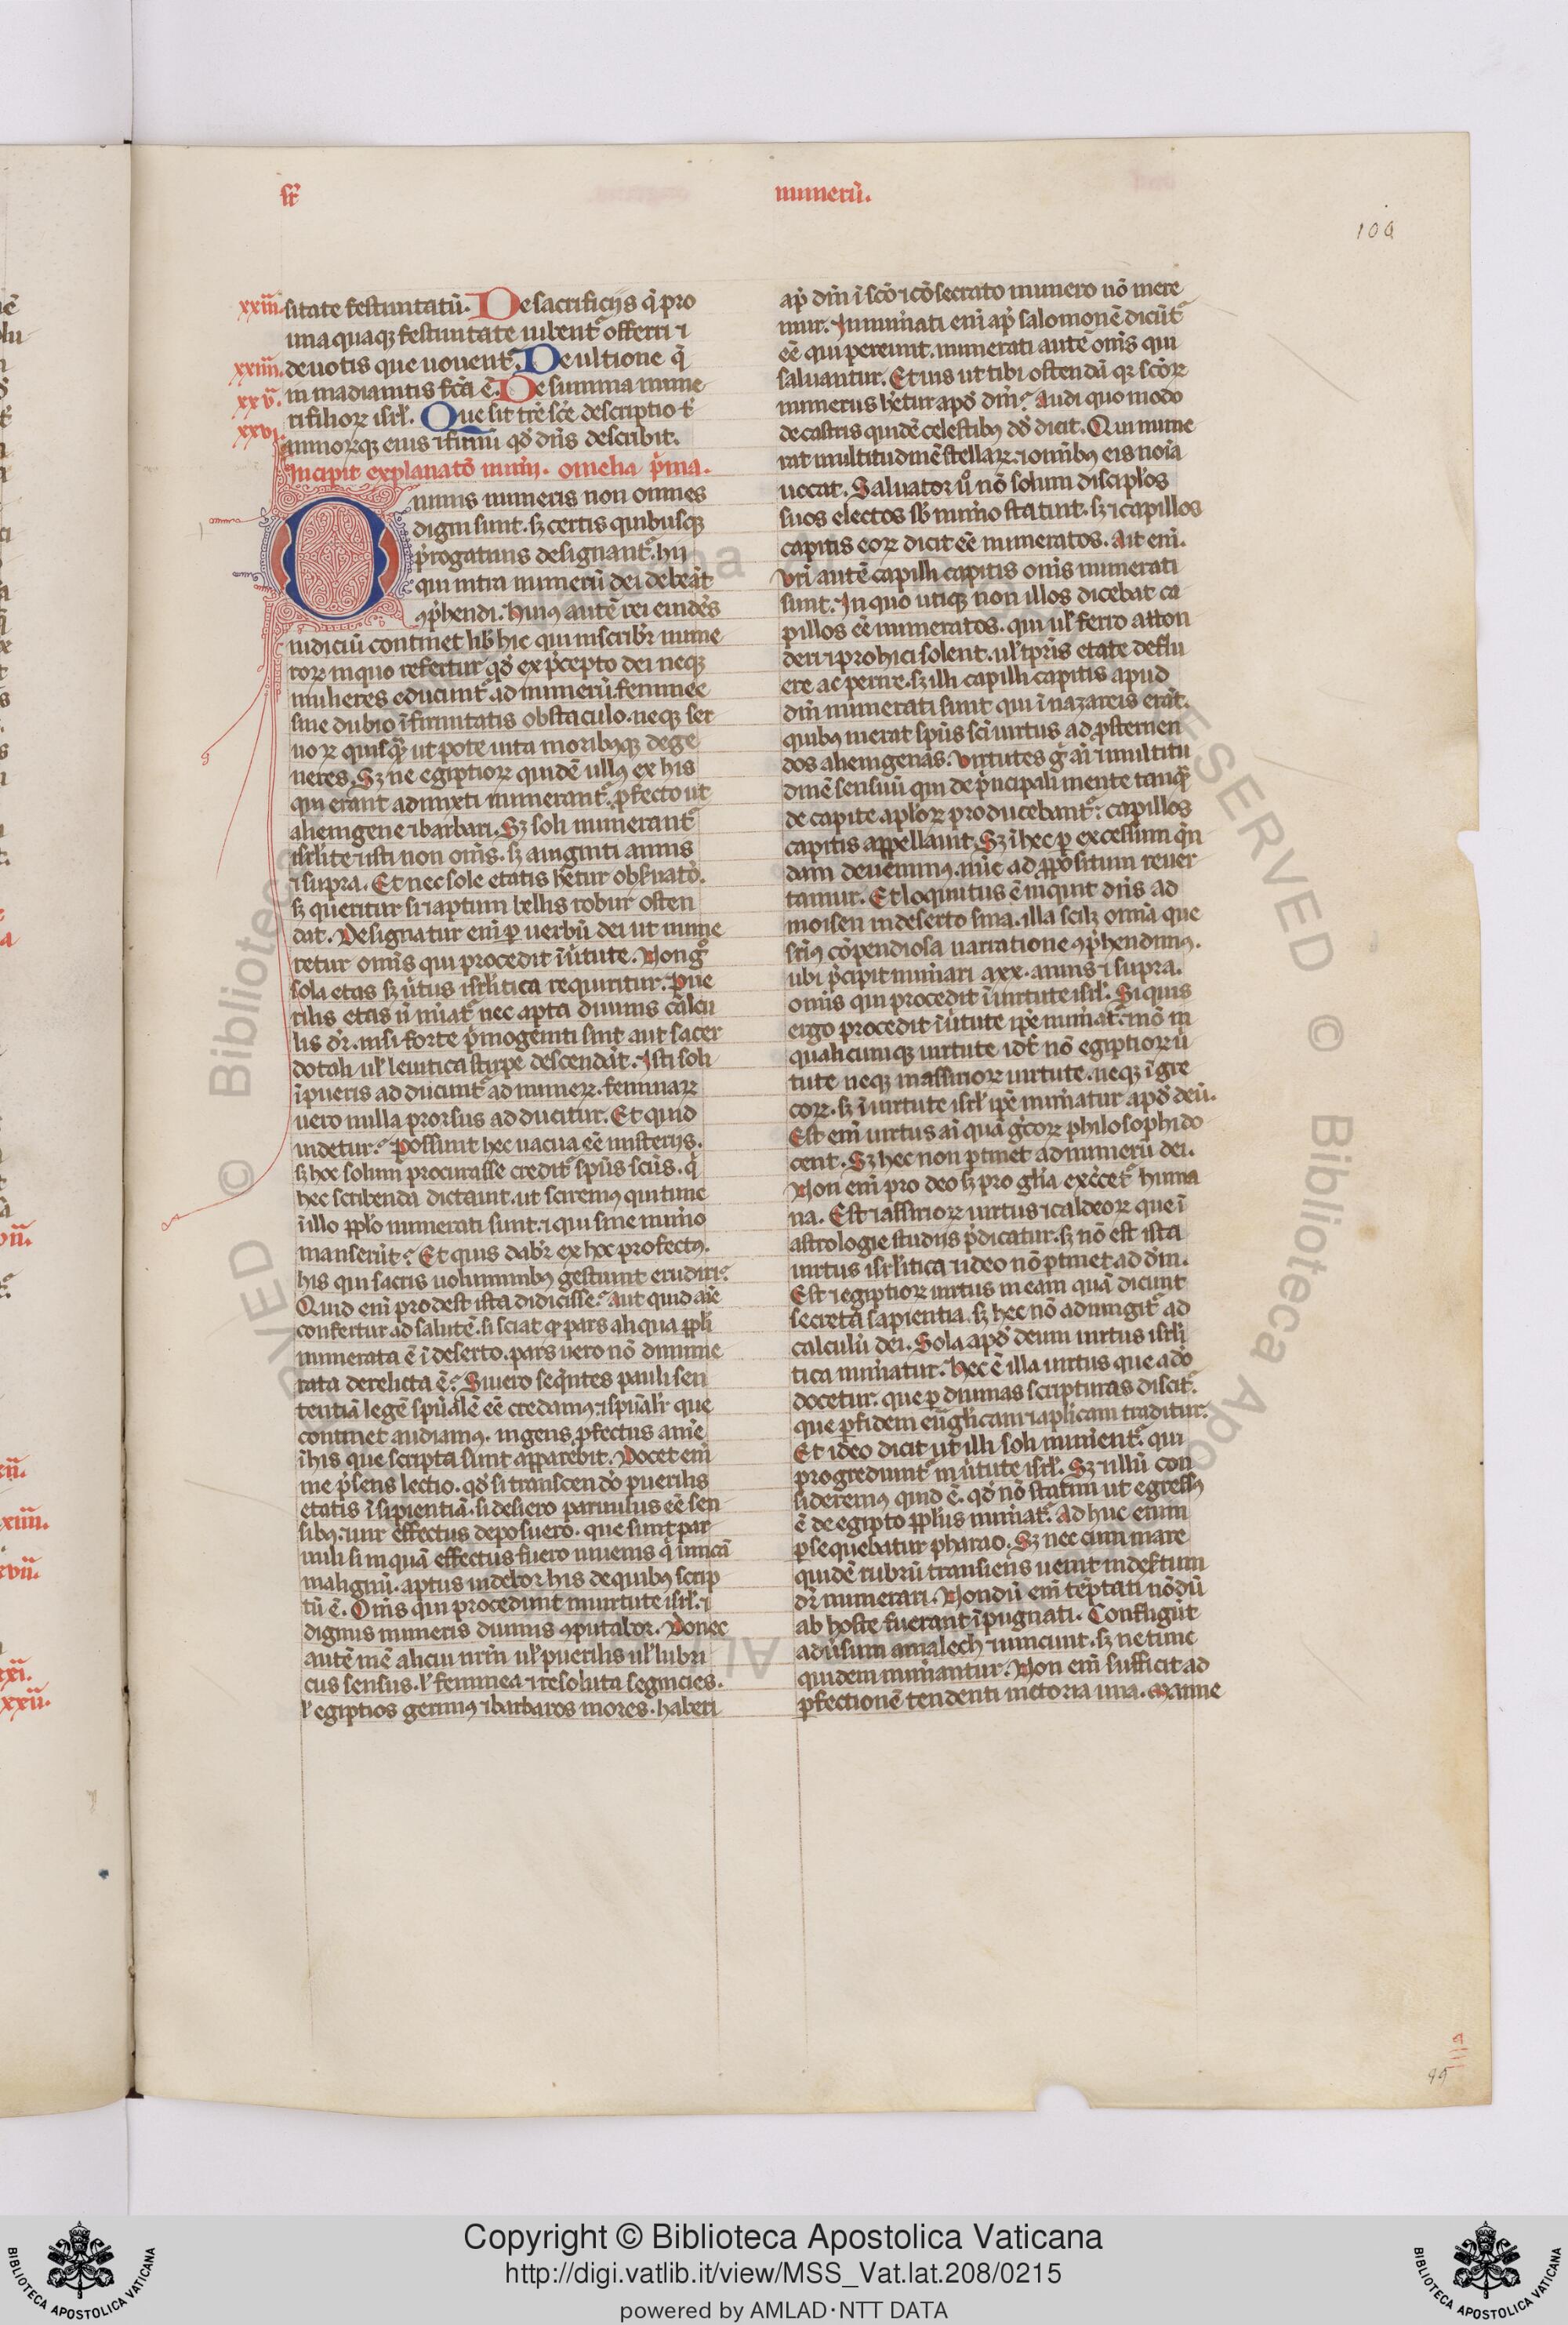 sup̄
numerū.
106
xxiii. sitate festiuitatū. De sacrificijs q̄ pro
una quaq; festiuitate iubent᷑ offerri ⁊
xxiiii. deuotis que uouent᷑. De ultione q̄
xxv. in madianitis fc̄a ē. De summa nume
ri filioꝝ isrł. Que sit tr̄e sc̄e descriptio ł
xxvi. anınoꝝq; eius ⁊ finiū qđ dn̄s describit.
Incipit explanatō num̄i. omelia p̄ma.
Diuinis numeris non omnes
digni sunt. sꝫ certis quibusq;
p̄rogatiuis designant᷑. hii
qui intra numerū dei debeāt
ꝯp̄hendi. Huius autē rei euidēs
iudiciū continet lib̄ hic qui inscribit᷑ nume
roꝝ in quo refertur qđ ex p̄cepto dei neq;
mulieres educunt᷑ ad numerū feminee
sine dubio ī firmitatis obstaculo. neq; ser
uoꝝ quisꝙ ut pote uita moribꝰq; dege
neres. Sꝫ ne egiptioꝝ quidē ullꝰ ex his
qui erant admixti numerant᷑. ꝓfecto ut
alienigene ⁊ barbari. Sꝫ soli numerant᷑
isrłite ⁊ isti non om̄s. sꝫ a uiginti annis
⁊ supra. Et nec sole etatis hētur obseruatō.
sꝫ queritur si ⁊ aptum bellis robur osten
dat. Designatur eni ꝑ uerbū dei ut nume
retur omīs qui procedit ī ūtute. Non gͦ
sola etas sꝫ ūtus isrłitica requiritur. Pue
rilis etas n̄ num̄at᷑ nec apta diuinis cālcu
lis dr̄. nisi forte p̄mogeniti sint aut sacer
dotali uł leuitica stirpe descendāt. Isti soli
ī pueris adducunt᷑ ad numeꝝ. feminaꝝ
uero nulla prorsus adducitur. Et quid
uidetur? Possunt hec uacua eē misterijs.
sꝫ hoc solum procurasse credit᷑ sp̄us sc̄us. q̄
hec scribenda dictauit. ut sciremꝰ qui tunc
ī illo pp̄lo numerati sunt. ⁊ qui sine num̄o
manserūt? Et quis dabit᷑ ex hoc profectꝰ.
his qui sacris uoluminibꝰ gestiunt erudiri?
Quid eni prodest ista didicisse? Aut quid aīe
confertur ad salutē. si sciat qꝫ pars aliqua pp̄li
numerata ē ī deserto. pars uero nō dinume
rata derelicta ē? Si uero seq̄ntes pauli sen
tentiā legē sp̄ualē eē credamꝰ. ⁊ sp̄ualit᷑ que
continet audiamꝰ. ingens ꝓfectus anīe
ī his que scripta sunt apparebit. Docet eni
me p̄sens lectio. qđ si transcendo puerilis
etatis ī sipientiā. si desiero paruulus eē sen
sibꝰ. ⁊ uir effectus deposuero. que sunt par
uuli si inquā effectus fuero iuuenis q̄ uincā
malignū. aptus uidebor his de quibꝰ scrip
tū ē. Om̄is qui procedunt in uirtute isrł. ⁊
dignus numeris diuinis ꝯputabor. Donec
autē inē alicui nr̄m uł puerilis uł lubri
cus sensus. ł feminea ⁊ resoluta segnicies.
ł egiptios gerimꝰ ⁊ barbaros mores. haberi
ap̄ dn̄m ī sc̄o ⁊ cōsecrato numero nō mere
mur. Innum̄ati eni ap̄ salomonē dicūt᷑
eē qui pereunt. numerati autē omīs qui
saluantur. Et uis ut tibi ostendā qꝫ sc̄oꝝ
numerus hētur apđ dn̄m? Audi quo modo
de castris quidē celestibꝰ dđ dicit. Qui nume
rat multitudinē stellaꝝ. ⁊ om̄ibꝰ eis noīa
uocat. Saluator ůͦ nō solum discipłos
suos electos sb̄ num̄o statuit. sꝫ ⁊ capillos
capitis eoꝝ dicit eē numeratos. Ait eni.
Vr̄i autē capilli capitis om̄s numerati
sunt. In quo utiq; non illos dicebat ca
pillos eē numeratos. qui uł ferro atton
deri ⁊ prohici solent. uł ipr̄is etate deflu
ere ac perire. sꝫ illi capilli capitis apud
dn̄m numerati sunt qui ī nazareis erāt.
quibꝰ inerat sp̄us sc̄i uirtus ad ꝓsternen
dos alienigenas. Virtutes g̃ aī ⁊ multitu
dinē sensuū qui de p̄ncipali mente tanꝙ
de capite apłoꝝ producebant᷑: capillos
capitis appellauit. Sꝫ ī hec ꝑ excessum q̄n
dam deuenimꝰ. nūc ad ꝓpositum reuer
tamur. Et loquutus ē inquit dn̄s ad
moisen in deserto sina. illa sciłꝫ om̄ia que
suꝑiꝰ cōpendiosa narratione ꝯp̄hendimꝰ.
ubi p̄cipit num̄ari a xx. annis ⁊ supra.
omīs qui procedit ī uirtute isrł. Si quis
ergo procedit ī ūtute ipē num̄at᷑. ⁊ nō in
qualicumq; uirtute idē nō egiptioꝝ ū
tute neq; in assirioꝝ uirtute. neq; ī gre
coꝝ. sꝫ ī uirtute isrł ipē num̄atur apđ deū.
Est eni uirtus aī quā g̃coꝝ philosophi do
cent. Sꝫ hec non ꝑtinet ad numerū dei.
Non eni pro deo sꝫ pro głia exc̄cet᷑ huma
na. Est ⁊ assirioꝝ uirtus ⁊ caldeoꝝ que ī
astrologie studijs p̄dicatur. sꝫ nō est ista
uirtus isrłitica ⁊ ideo nō ꝑtinet ad dm̄.
Est ⁊ egiptioꝝ uirtus in eam quā dicunt
secretā sapientia. sꝫ hec nō adiungit᷑ ad
calculū dei. Sola apđ deum uirtus isrłi
tica num̄atur. Hec ē illa uirtus que a do
docetur. que ꝑ diuinas scripturas discit᷑.
que ꝑ fidem eūg̃licam ⁊ ap̄licam traditur.
Et ideo dicit ut illi soli num̄ent᷑. qui
progrediunt᷑ in ūtute isrł. Sꝫ ⁊ illū con
sideremꝰ quid ē. qđ nō statim ut egressꝰ
ē de egipto pp̄lus num̄at᷑. Adhuc enim
ꝑsequebatur pharao. Sꝫ nec cum mare
quidē rubrū transiens uenit in deẜtum
dr̄ numerari. Nondū eni tēptati nōdū
ab hoste fuerant īpugnati. Confligūt
aduersum amalech ⁊ uincunt. sꝫ ne tunc
quidem num̄antur. Non eni sufficit ad
ꝑfectionē tendenti uictoria una. Manne
99
Copyright © Biblioteca Apostolica Vaticana
http://digi.vatlib.it/view/MSS_Vat.lat.208/0215
powered by AMLAD·NTT DATA
BIBLIOTECA APOSTOLICA VATICANA
BIBLIOTECA APOSTOLICA VATICANA